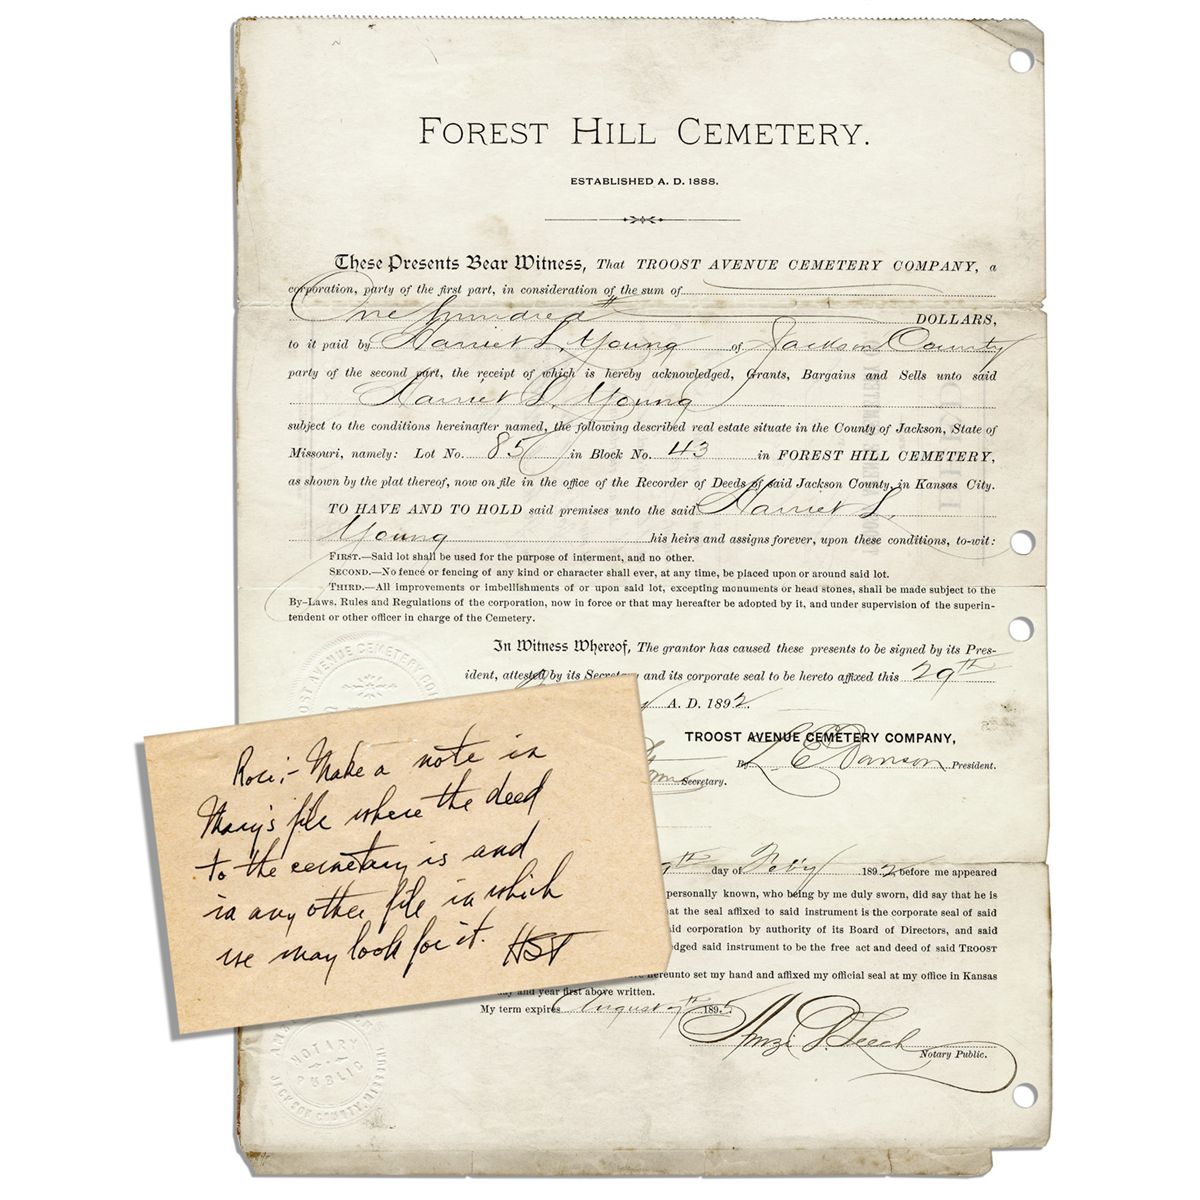 FOREST HILL CEMETERY.
ESTABLISHED A. D. 1888.
These Presents Bear Witness, That TROOST AVENUE CEMETERY COMPANY, a
corporation, party of the first part, in consideration of the sum of
One Hundred DOLLARS,
to it paid by Harriet L. Young of Jackson County
party of the second part, the receipt of which is hereby acknowledged, Grants, Bargains and Sells unto said
Harriet L. Young
subject to the conditions hereinafter named, the following described real estate situate in the County of Jackson, State of
Missouri, namely: Lot No. 85 in Block No. 43 in FOREST HILL CEMETERY,
as shown by the plat thereof, now on file in the office of the Recorder of Deeds of said Jackson County, in Kansas City.
TO HAVE AND TO HOLD said premises unto the said Harriet L.
Young his heirs and assigns forever, upon these conditions, to-wit:
FIRST.—Said lot shall be used for the purpose of interment, and no other.
SECOND.—No fence or fencing of any kind or character shall ever, at any time, be placed upon or around said lot.
THIRD.—All improvements or imbellishments of or upon said lot, excepting monuments or head stones, shall be made subject to the
By-Laws, Rules and Regulations of the corporation, now in force or that may hereafter be adopted by it, and under supervision of the superin-
tendent or other officer in charge of the Cemetery.
In Witness Whereof, The grantor has caused these presents to be signed by its Pres-
ident, attested by its Secretary and its corporate seal to be hereto affixed this 29th
A. D. 1892.
TROOST AVENUE CEMETERY COMPANY,
By President.
Secretary.
Rose:- Make a note in
Mary's file where the deed
to the cemetary is and
in any other file in which
we may look for it. HST
day of Feb'y 1892, before me appeared
personally known, who being by me duly sworn, did say that he is
at the seal affixed to said instrument is the corporate seal of said
id corporation by authority of its Board of Directors, and said
edged said instrument to be the free act and deed of said TROOST
hereunto set my hand and affixed my official seal at my office in Kansas
day and year first above written.
My term expires August 7th 1895.
Notary Public.
NOTARY
PUBLIC
JACKSON COUNTY, MISSOURI